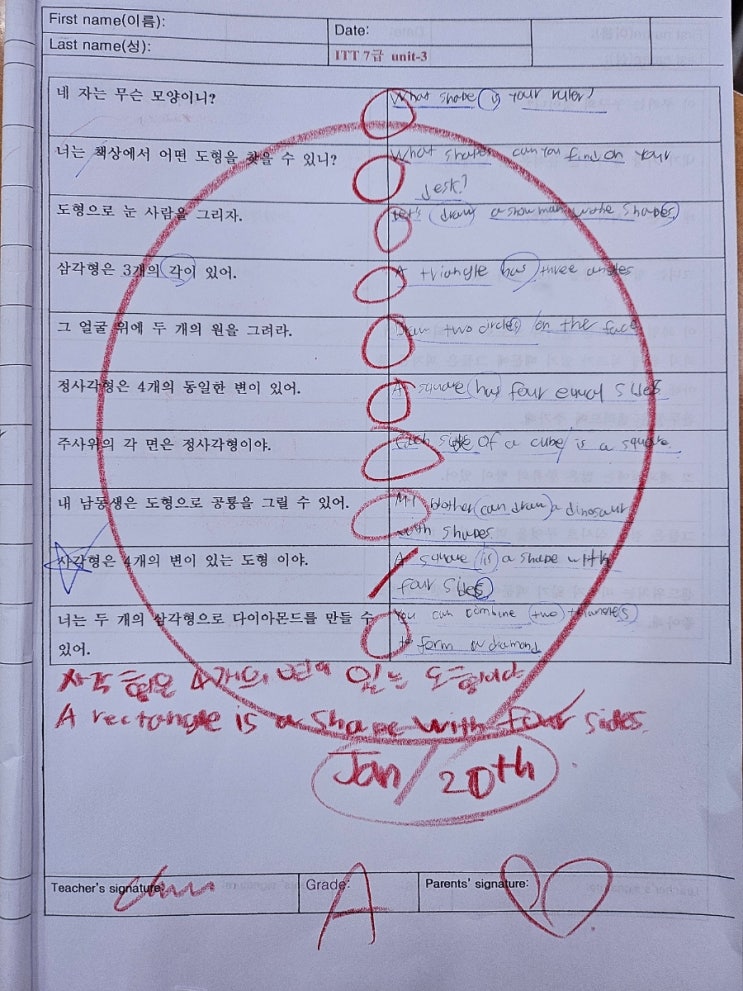 First name(이름):
Date:
Last name(성):
ITT 7급 unit-3
네 자는 무슨 모양이니?
What shape is your ruler?
너는 책상에서 어떤 도형을 찾을 수 있니?
What shapes can you find on your
desk?
도형으로 눈 사람을 그리자.
Let's draw a snowman
삼각형은 3개의 각이 있어.
A triangle has three angles
그 얼굴 위에 두 개의 원을 그려라.
Draw two circles on the face
정사각형은 4개의 동일한 변이 있어.
A square has four equal sides
주사위의 각 면은 정사각형이야.
Each side of a cube is a square
내 남동생은 도형으로 공룡을 그릴 수 있어.
My brother can draw a dinosaur
with shapes
사각형은 4개의 변이 있는 도형 이야.
A square is a shape with
four sides
너는 두 개의 삼각형으로 다이아몬드를 만들 수
있어.
You can combine two triangles
to form a diamond
사각형은 4개의 변이 있는 도형이야
A rectangle is a shape with four sides.
Jan/20th
Teacher's signature:
Grade:
A
Parents' signature: